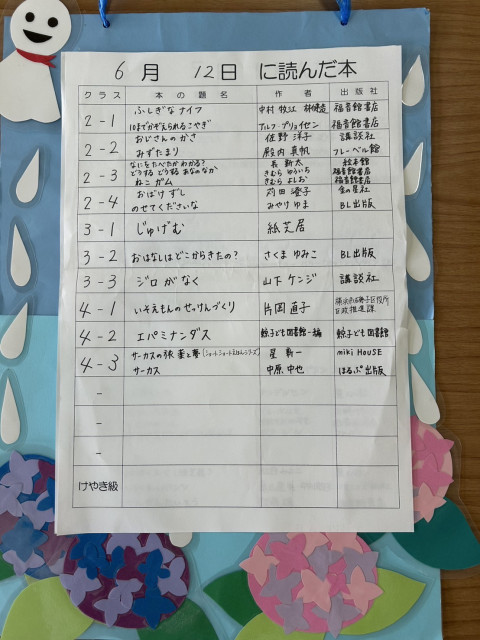 6月 12日 に読んだ本
クラス 本の題名 作者 出版社
2-1 ふしぎなナイフ 中村牧江 林健造 福音館書店
10までかぞえられるこやぎ アルフ・プリョイセン 福音館書店
2-2 おじさんのかさ 佐野洋子 講談社
みずたまり 殿内真帆 フレーベル館
2-3 なにをたべたかわかる? 長新太 絵本館
どうする どうする あなのなか きむらゆういち 福音館書店
ねこガム きむらよしお 福音館書店
2-4 おばけずし 苅田澄子 金の星社
のせてくださいな みやけゆま BL出版
3-1 じゅげむ 紙芝居
3-2 おはなしはどこからきたの? さくまゆみこ BL出版
3-3 ジロがなく 山下ケンジ 講談社
4-1 いそえもんのせっけんづくり 片岡直子 横浜市磯子区役所
区政推進課
4-2 エパミナンダス 東京子ども図書館-編 東京子ども図書館
4-3 サーカスの旅 (ショートショートえほんシリーズ) 星新一 miki HOUSE
サーカス 中原中也 ほるぷ出版
-
-
-
けやき級